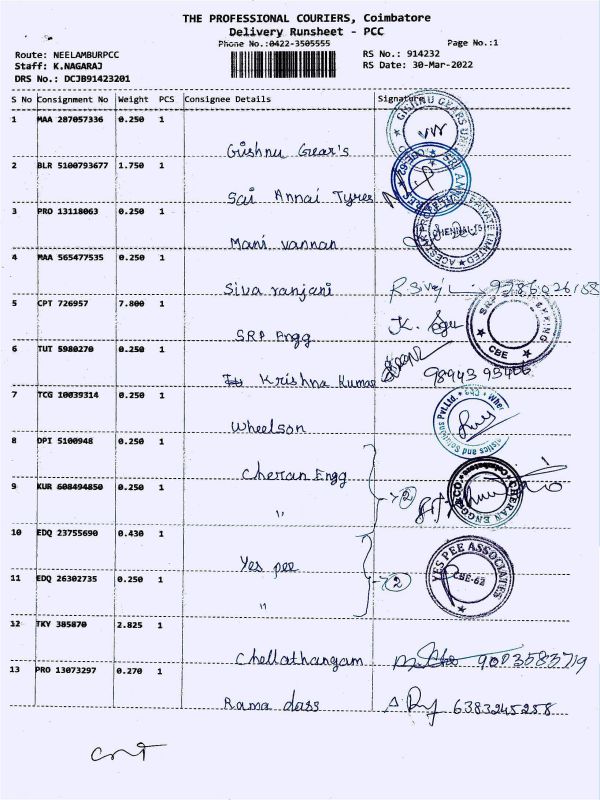 THE PROFESSIONAL COURIERS, Coimbatore
Delivery Runsheet - PCC
Phone No.:0422-3505555 Page No.:1
Route: NEELAMBURPCC RS No.: 914232
Staff: K.NAGARAJ RS Date: 30-Mar-2022
DRS No.: DCJB91423201
S No Consignment No Weight PCS Consignee Details Signature
1 MAA 287057336 0.250 1
Gishnu Gear's
2 BLR 5100793677 1.750 1
Sai Annai Tyres
3 PRO 13118063 0.250 1
Mani vannan
CHENNAI-15
ACESTAR PRIVATE LIMITED
4 MAA 565477535 0.250 1
Siva ranjani
5 CPT 726957 7.800 1
SRP Engg
CBE
6 TUT 5980270 0.250 1
Krishna Kumar
7 TCG 10039314 0.250 1
Wheelson
8 DPI 5100948 0.250 1
Cheran Engg
CHERAN ENGG CO
9 KUR 608494850 0.250 1
" 2
10 EDQ 23755690 0.430 1
Yes pee
YES PEE ASSOCIATES
CBE-62
11 EDQ 26302735 0.250 1
" 2
12 TKY 385870 2.825 1
Chellathangam 9003583719
13 PRO 13073297 0.270 1
Rama dass 6383245258